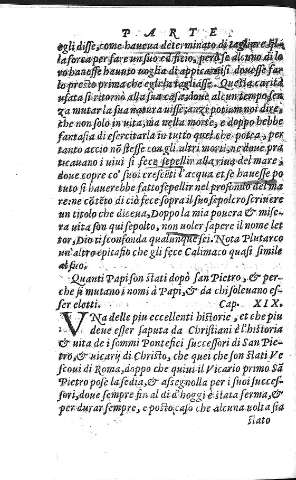 PARTE
egli disse, come haueua determinato di tagliare quel
la forca per far un suo edificio, però se alcuno di lo
ro hauesse hauuto uoglia di appiccarsi douesse far
lo presto prima che egli la tagliasse. Questa carità
usata si ritornò alla sua casa, doue alcun tempo sen
za mutar la sua natura uisse anzi
che non solo in uita, ma nella morte, e doppo hebbe
fantasia di esercitarla in tutto quel che potea, per
tanto acciò nō stesse con gli altri morti, ne doue pra
ticauano i uiui si fece sepellir alla riua del mare,
doue copre co' suoi crescēti l'acqua et se hauesse po
tuto si hauerebbe fatto sepellir nel profondo del ma
re: ne cōtēto di ciò fece sopra il suo sepolcro scriuere
un titolo che diceua, Doppo la mia pouera & mise-
ra uita son qui sepolto, non uoler sapere il nome let
tor, Dio ti confonda qualunque sei. Nota Plutarco
un'altro epitafio che gli fece Calimaco quasi simile
al suo.
Quanti Papi son stati dopò san Pietro, & per-
che si mutano i nomi à Papi, & da chi soleuano es-
ser eletti. Cap. XIX.
VNa delle piu eccellenti historie, et che piu
deue esser saputa da Christiani è l'historia
& uita de i sommi Pontefici successori di San Pie-
tro, & uicarij di Christo, che quei che son stati Ve
scoui di Roma, doppo che quiui il Vicario primo Sā
Pietro pose la sedia, & assegnolla per i suoi succes-
sori, doue sempre fin al dì d'hoggi è stata ferma, &
per durar sempre, e posto caso che alcuna uolta sia
stato